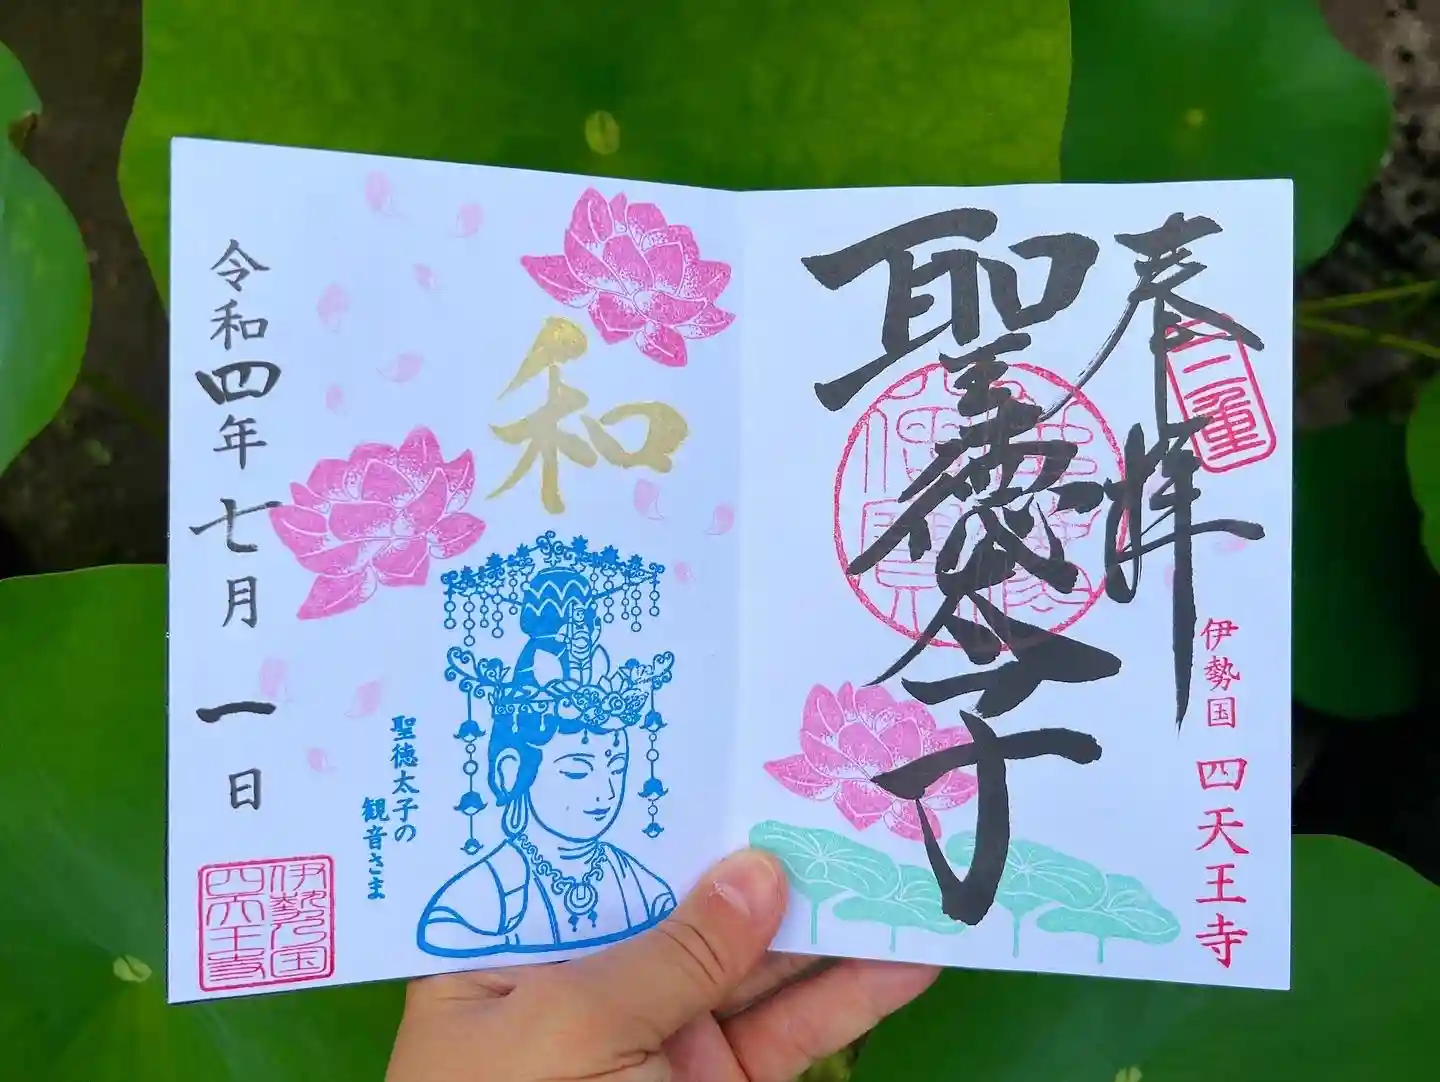 奉拝
二重
聖徳太子
伊勢国 四天王寺
和
聖徳太子の
観音さま
令和四年七月一日
伊勢乃国
四天王寺